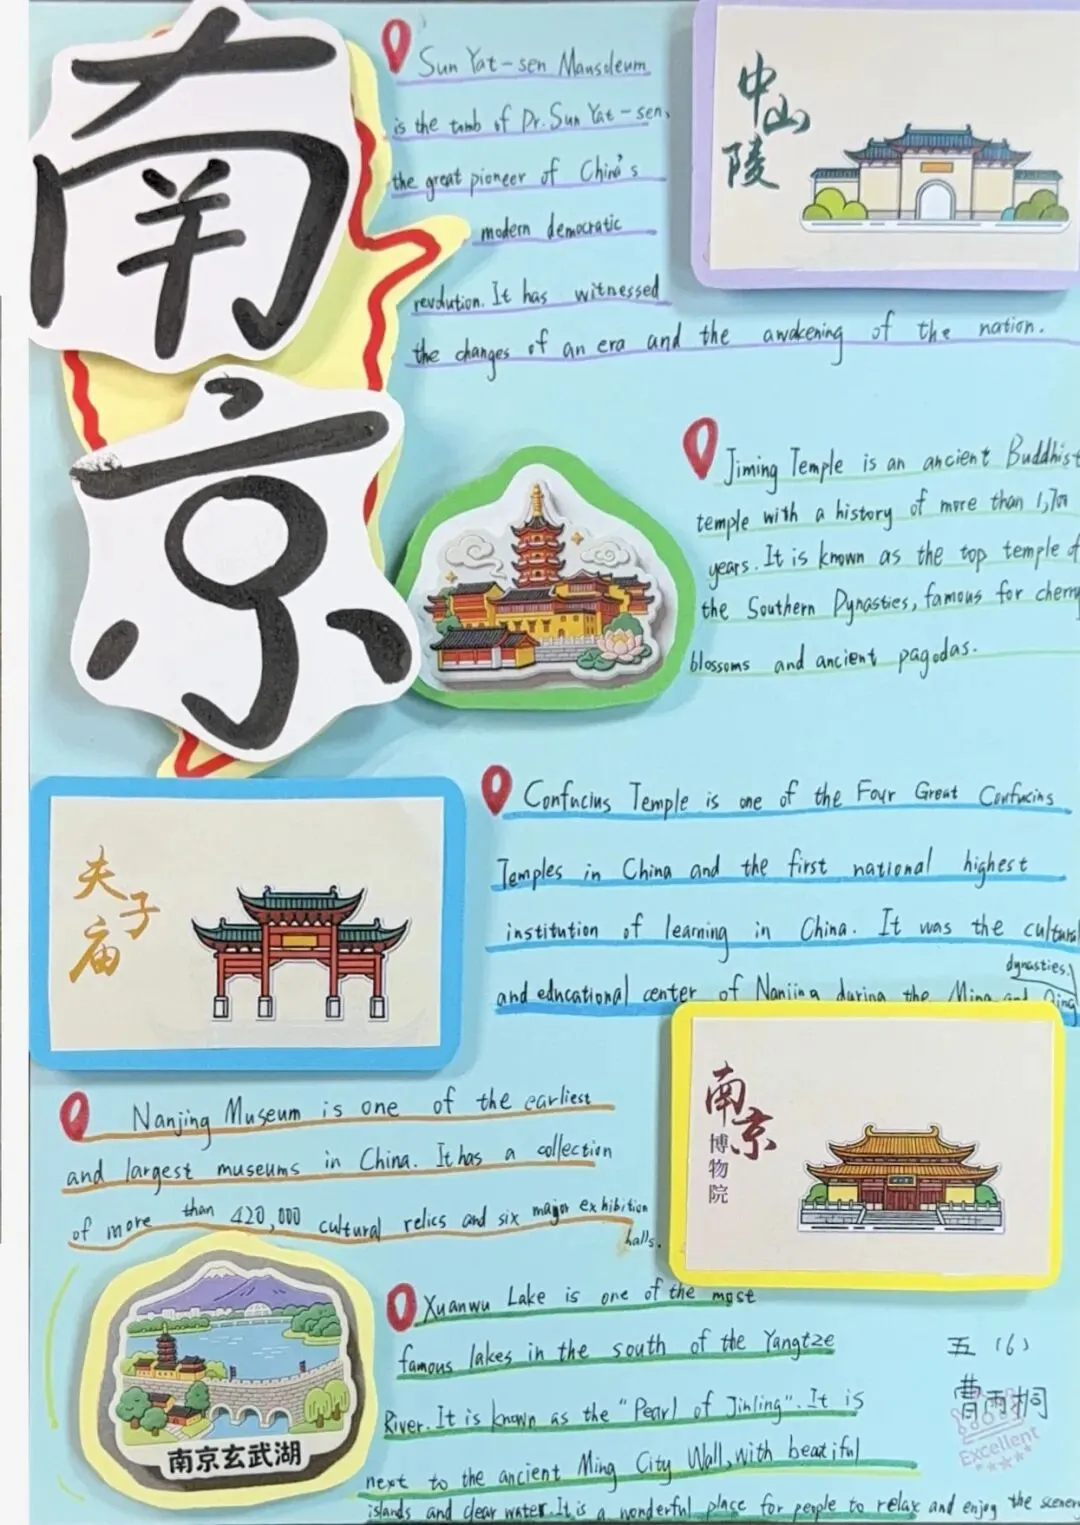 南
京
Sun Yat-sen Mausoleum
is the tomb of Dr. Sun Yat-sen,
the great pioneer of China's
modern democratic
revolution. It has witnessed
the changes of an era and the awakening of the nation.
中山陵
Jiming Temple is an ancient Buddhist
temple with a history of more than 1,700
years. It is known as the top temple of
the Southern Dynasties, famous for cherry
blossoms and ancient pagodas.
夫子庙
Confucius Temple is one of the Four Great Confucius
Temples in China and the first national highest
institution of learning in China. It was the cultural
and educational center of Nanjing during the Ming and Qing
dynasties.
Nanjing Museum is one of the earliest
and largest museums in China. It has a collection
of more than 420,000 cultural relics and six major exhibition
halls.
南京
博物院
南京玄武湖
Xuanwu Lake is one of the most
famous lakes in the south of the Yangtze
River. It is known as the "Pearl of Jinling". It is
next to the ancient Ming City Wall, with beautiful
islands and clear water. It is a wonderful place for people to relax and enjoy the scenery
五(6)
曹雨桐
Excellent